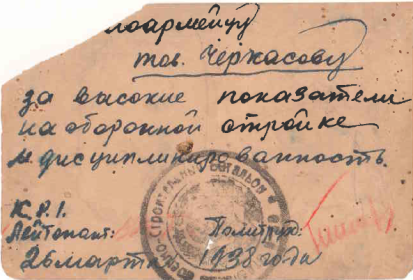 лоармейцу
тов. Черкасову
за высокие показатели
на оборонной стройке
и дисциплинированность
К.Р.1.
Лейтонант: Политрук:
26 марта 1938 года